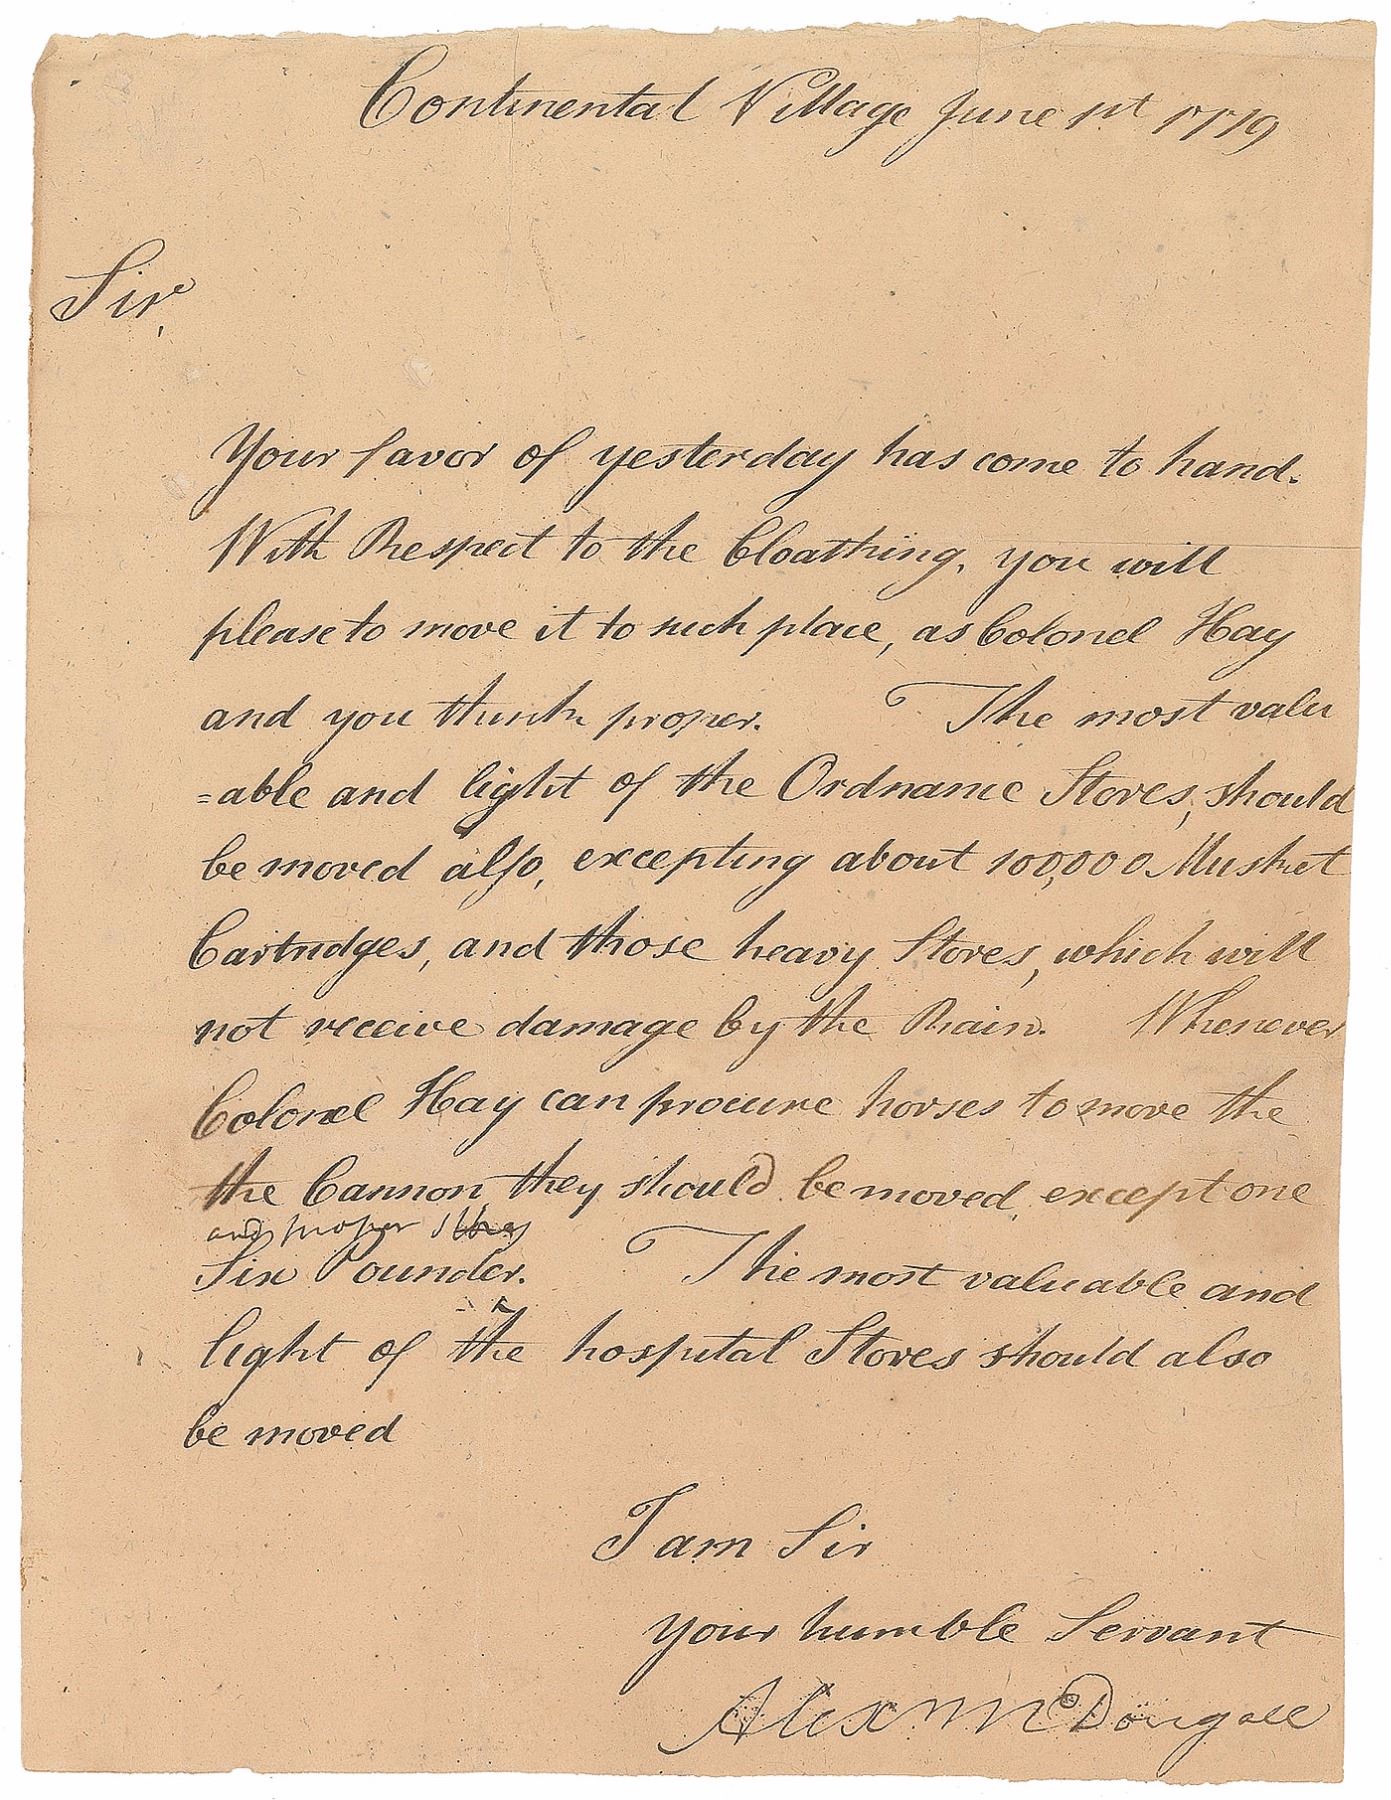 Continental Village June 1st 1779
Sir,
Your favor of yesterday has come to hand.
With Respect to the Cloathing, you will
please to move it to such place, as Colonel Hay
and you think proper. The most valu
=able and light of the Ordnance Stores, should
be moved also, excepting about 100,000 Musket
Cartridges, and those heavy Stores, which will
not receive damage by the Rain. Whenever
Colonel Hay can procure horses to move the
the Cannon they should be moved, except one
and proper
Six Pounder. The most valuable and
light of the hospital Stores should also
be moved
I am Sir
your humble Servant
Alex McDougall